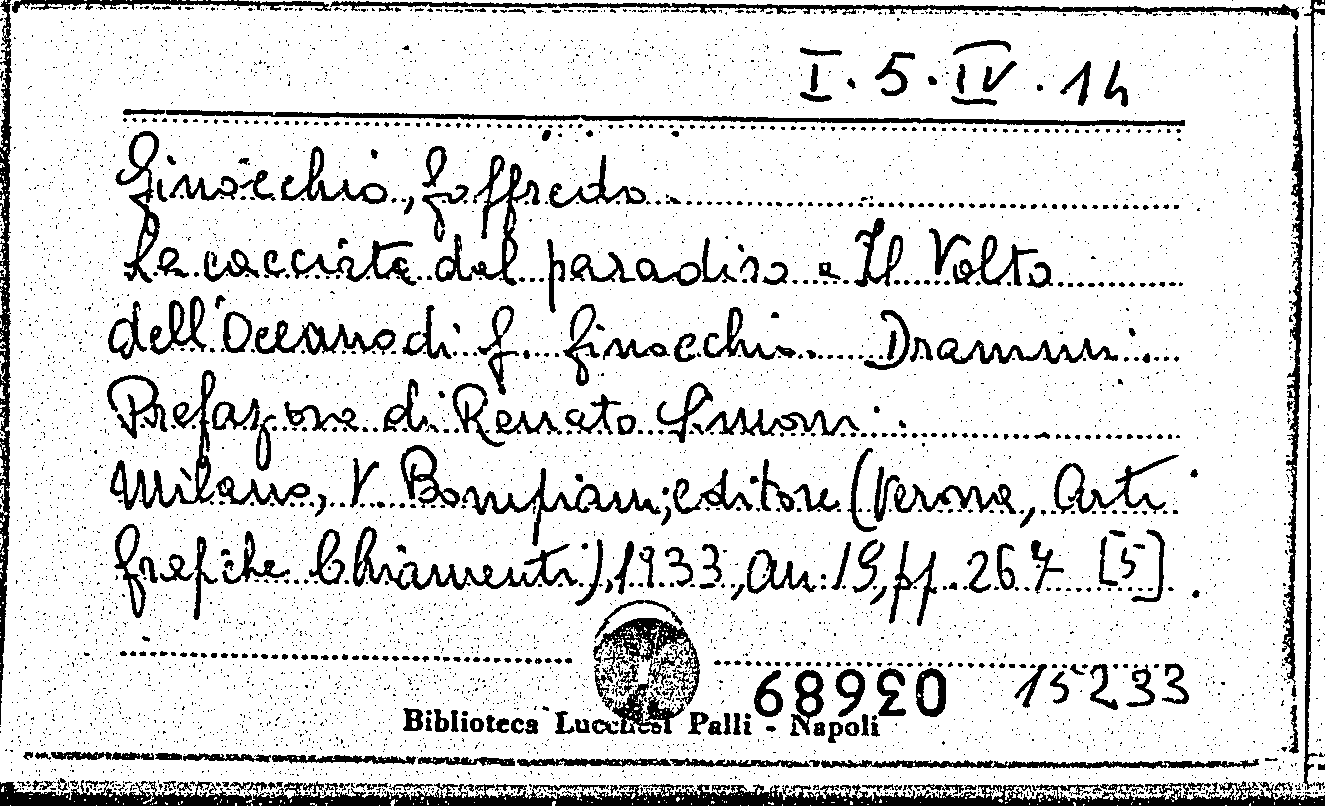 I. 5. IV. 14
Ginocchio, Goffredo.
La cacciata dal paradiso e Il Volto
dell'Oceano di G. Ginocchio. Drammi.
Prefazione di Renato Simoni.
Milano, V. Bompiani, editore (Verona, Arti
Grafiche Chiamenti), 1933, an. 19, pp. 267 [5].
68930 15233
Biblioteca Lucchesi Palli - Napoli